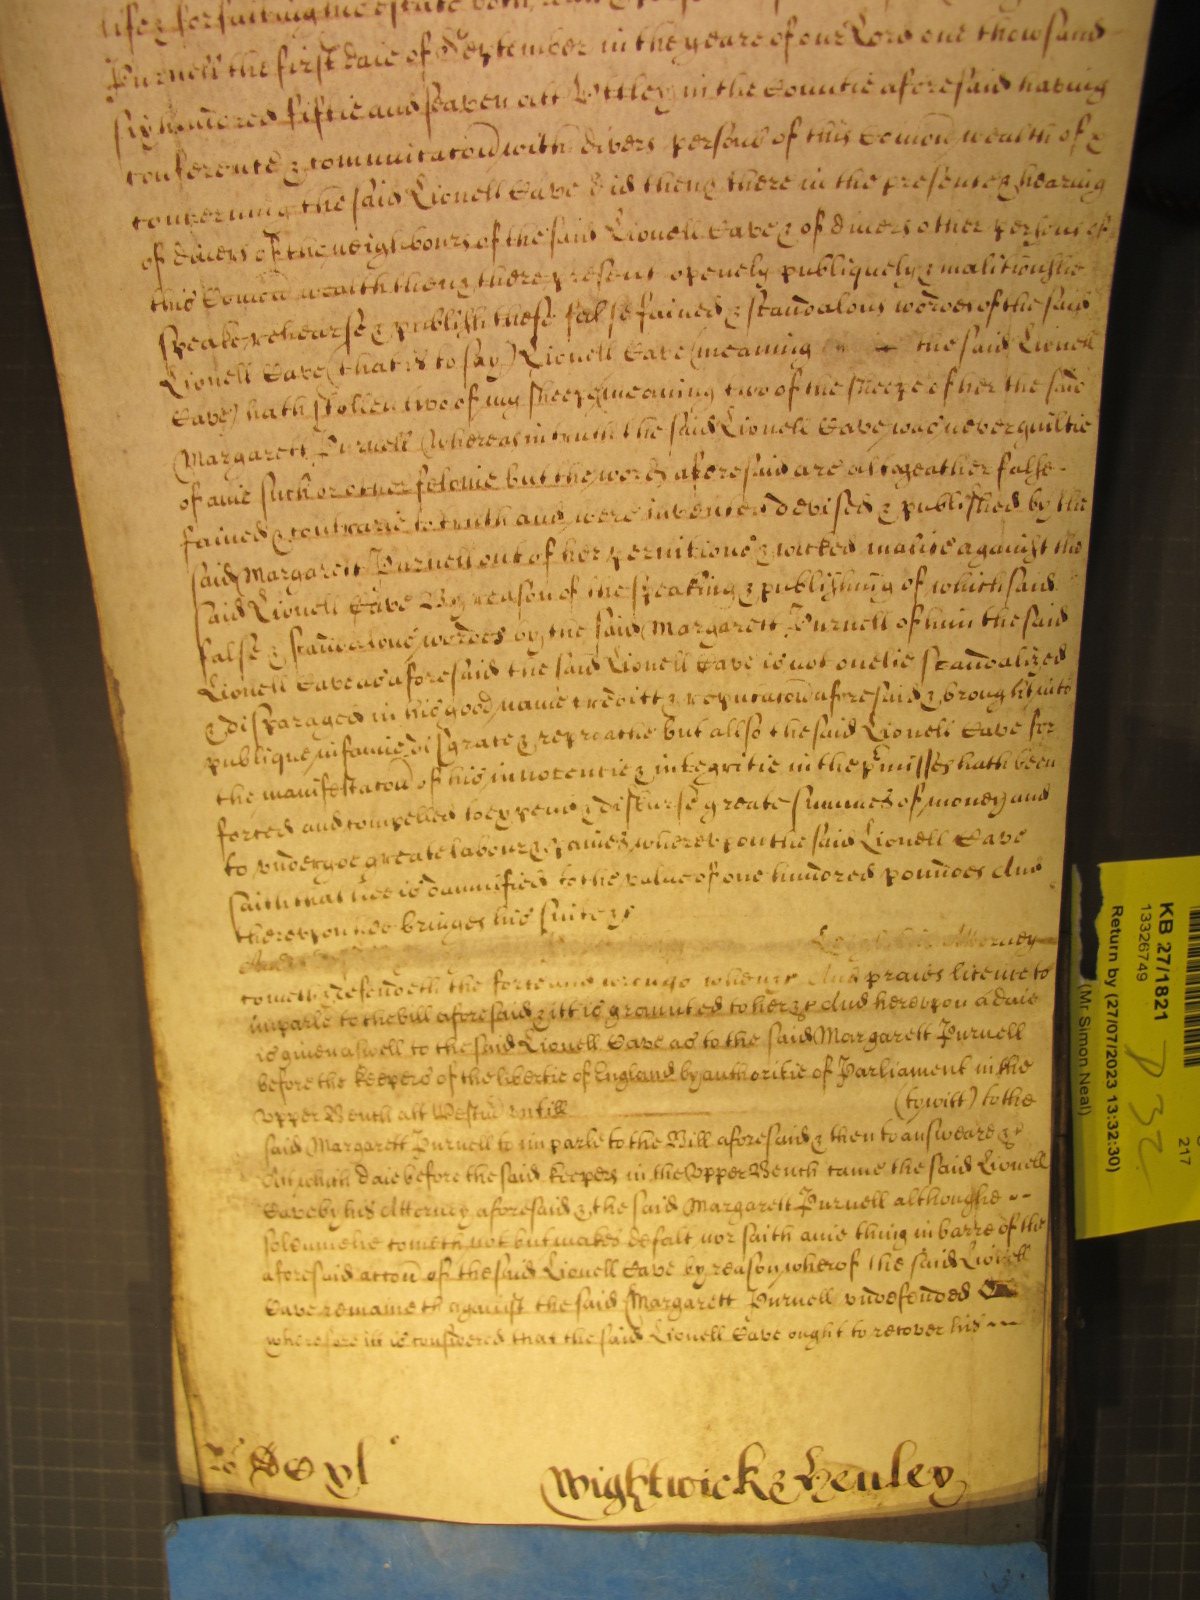 life & forfaiting the estate both
Purnell the first daie of September in the yeare of our Lord one thowsand
six hundred fiftie and seaven att Uttley in the Countie aforesaid having
conference & communicacon with divers persons of this Comon wealth of &
concerning the said Lionell Cave did then & there in the presence & hearing
of divers of the neighbours of the said Lionell Cave & of divers other persons of
this Comon wealth then & there present openely publiquely & malitiouslie
speake rehearse & publish these false fained & scandalous wordes of the said
Lionell Cave (that is to say) Lionell Cave (meaning the said Lionell
Cave) hath stollen two of my sheepe (meaning two of the sheepe of her the said
Margarett Purnell (whereas in truth the said Lionell Cave was never guiltie
of anie such or other felonie but the words aforesaid are altogeather false
fained & contrarie to truth and were invented devised & published by the
said Margarett Purnell out of her pernitious & wicked malice against the
said Lionell Cave By reason of the speaking & publishing of which said
false & scandalous wordes by the said Margarett Purnell of him the said
Lionell Cave as aforesaid the said Lionell Cave is not onelie scandalized
& disparaged in his good name creditt & reputacon aforesaid & brought into
publique infamie disgrace & reproache but allso the said Lionell Cave for
the manifestacon of his innocencie & integritie in the pmisses hath been
forced and compelled to expend & disburse greate summes of money and
to undergoe greate labour & paines whereupon the said Lionell Cave
saith that hee is damnified to the value of one hundred poundes And
thereupon hee bringes his suite &c
And his Attorney
cometh & defendeth the force and wronge when &c And praies licence to
imparle to the bill aforesaid & itt is graunted to her &c And hereupon a daie
is given aswell to the said Lionell Cave as to the said Margarett Purnell
before the keepers of the libertie of England by authoritie of Parliament in the
Upper Bench att Westm untill (to witt) to the
said Margarett Purnell to imparle to the Bill aforesaid & then to answeare &c
Att which daie before the said keepers in the Upper Bench came the said Lionell
Cave by his Attorney aforesaid & the said Margarett Purnell althoughe
solemnelie cometh not but makes defalt nor saith anie thing in barre of the
aforesaid accon of the said Lionell Cave by reason wherof the said Lionell
Cave remaineth against the said Margarett Purnell undefended
wherefore itt is considered that the said Lionell Cave ought to recover his
Ro xl
Wightwick & Henley
KB 27/1821
13326749
Return by (27/07/2023 13:32:30)
(Mr Simon Neal)
217